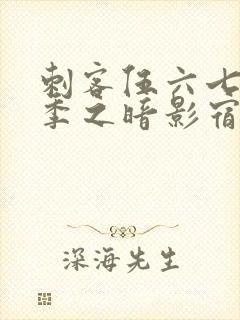 刺客伍六七
季之暗影宿
深海先生